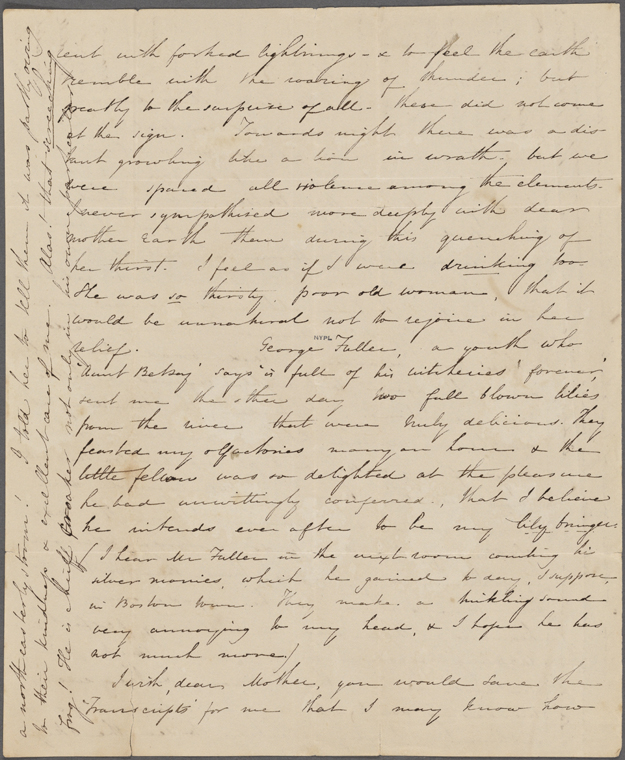 rent with forked lightnings - & to feel the earth
tremble with the roaring of thunder; but
greatly to the surprise of all - these did not come
at the sign. Towards night there was a dis-
tant growling like a lion in wrath - but we
were spared all violence among the elements.
I never sympathised more deeply with dear
mother Earth than during this quenching of
her thirst. I feel as if I were drinking too -
She was so thirsty, poor old woman, that it
would be unnatural not to rejoice in her
relief. George Fuller, a youth who
NYPL
'Aunt Betsey' says 'is full of his witcheries' forever,'
sent me the other day two full blown lilies
from the river that were truly delicious. They
feasted my olfactories many an hour & the
little fellow was so delighted at the pleasure
he had unwittingly conferred, that I believe
he intends ever after to be my lily bringer.
(I hear Mr Fuller in the next room counting his
silver monies, which he gained to day, I suppose,
in Boston town. They make a tinkling sound
very annoying to my head, & I hope he has
not much more.)
I wish, dear Mother, you would save the
'Transcripts' for me that I may know how
a northeasterly storm! I told her to tell them it was partly owing
to their kindness & excellent care of me. Alas! that screeching
frog! He is chief croaker not only in his own